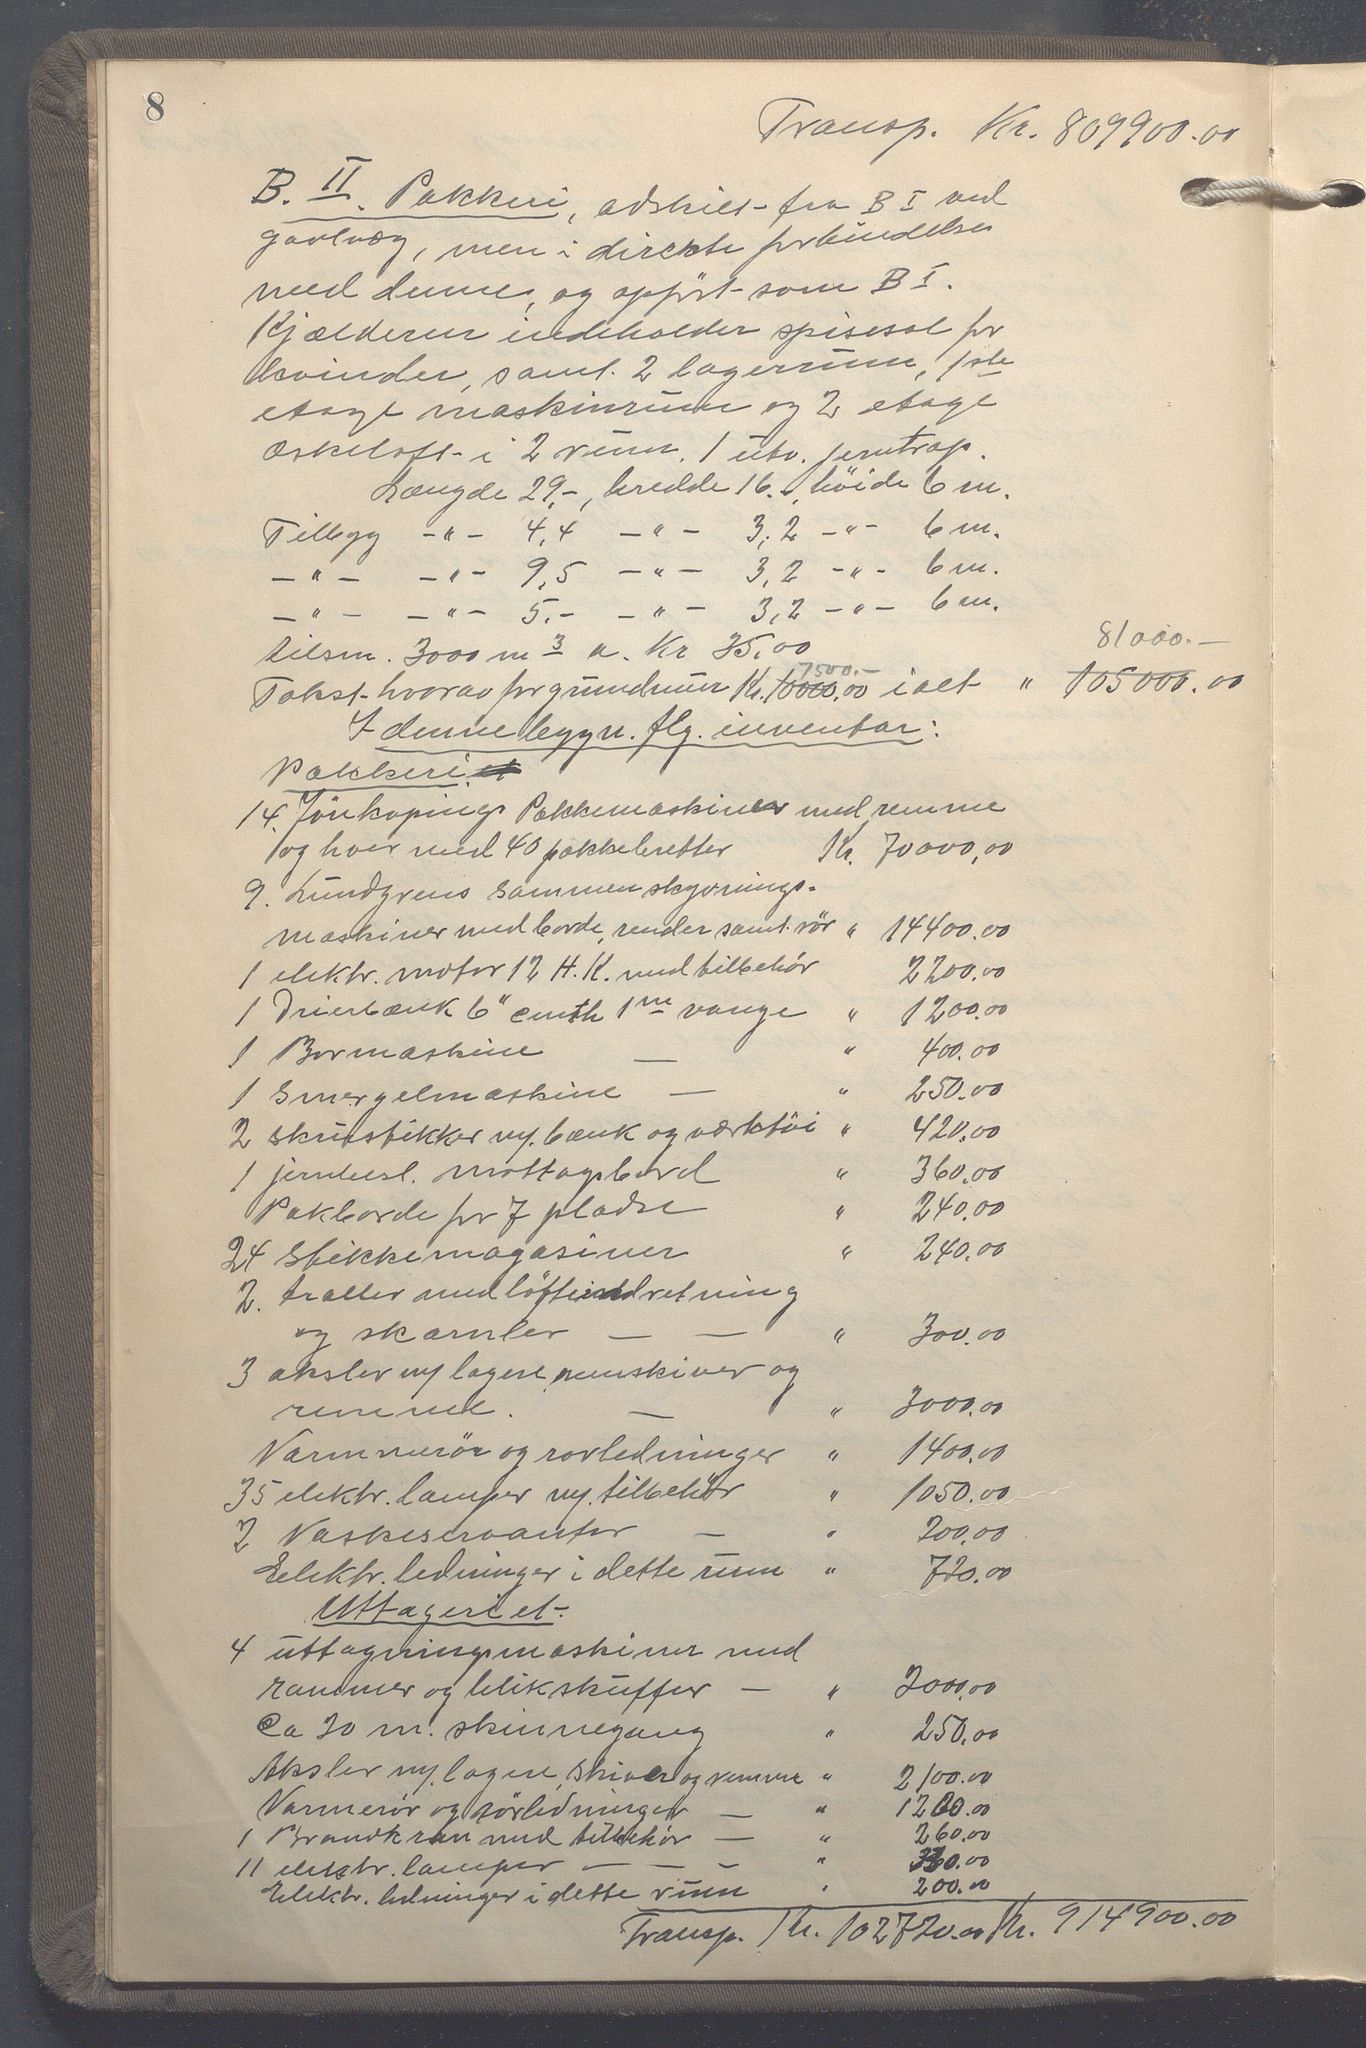 8
Transp. Kr. 809900.00
B. II. Pakkeri, adskilt fra B I ved
gavlvæg, men i direkte forbindelse
med denne, og opført som B I.
Kjælderen indeholder spisesal for
kvinder, samt 2 lagerrum, 1ste
etage maskinrum og 2 etage
æskeloft i 2 rum. 1 utv. jerntrap.
Længde 29,-, bredde 16.-, höide 6 m.
Tilbyg -"- 4,4 -"- 3,2 -"- 6 m.
-"- -"- 9,5 -"- 3,2 -"- 6 m.
-"- -"- 5.- -"- 3,2 -"- 6 m.
tilsm. 3000 m3 a. Kr 35,00
81000.-
7500.-
Takst hvorav for grundmur Kr. 10000.00 ialt " 105000.00
I denne bygn. flg. inventar:
Pakkeriet
14. Jönkopings Pakkemaskiner med remme
og hver med 40 pakkebretter Kr. 70000,00
9. Lundgrens sammenskyvnings-
maskiner med borde, render samt rör " 14400.00
1 elektr. motor 12 H.K. med tilbehör 2200.00
1 Dreiebænk 6" centh 1 m vange " 1200.00
1 Bormaskine — " 400.00
1 Smergelmaskine — " 250.00
2 skruestikker m/. bænk og værktöi " 420.00
1 jernbesl. mottagsbord " 360.00
Pakborde for 7 pladse " 240.00
24 Stikkemagasiner " 240.00
2. traller med löfteindretning
og skamler — — " 300.00
3 aksler m/ lagere, remskiver og
remme. — " 3000.00
Varmerör og rörledninger " 1400.00
35 elektr. lamper m/. tilbehör " 1050.00
2 Vaskeservanter — " 200.00
Elektr. ledninger i dette rum " 720.00
Uttageriet.
4 uttagningsmaskiner med
rammer og blikskuffer — " 2000.00
Ca 20 m. skinnegang " 250.00
Aksler m/. lagere, skiver og remme " 2100.00
Varmerör og rörledninger — " 1200.00
1 Brandkran med tilbehör — " 260.00
11 elektr. lamper — — — " 330.00
Elektr. ledninger i dette rum " 200.00
Transp. Kr. 102720.00 Kr. 914900.00